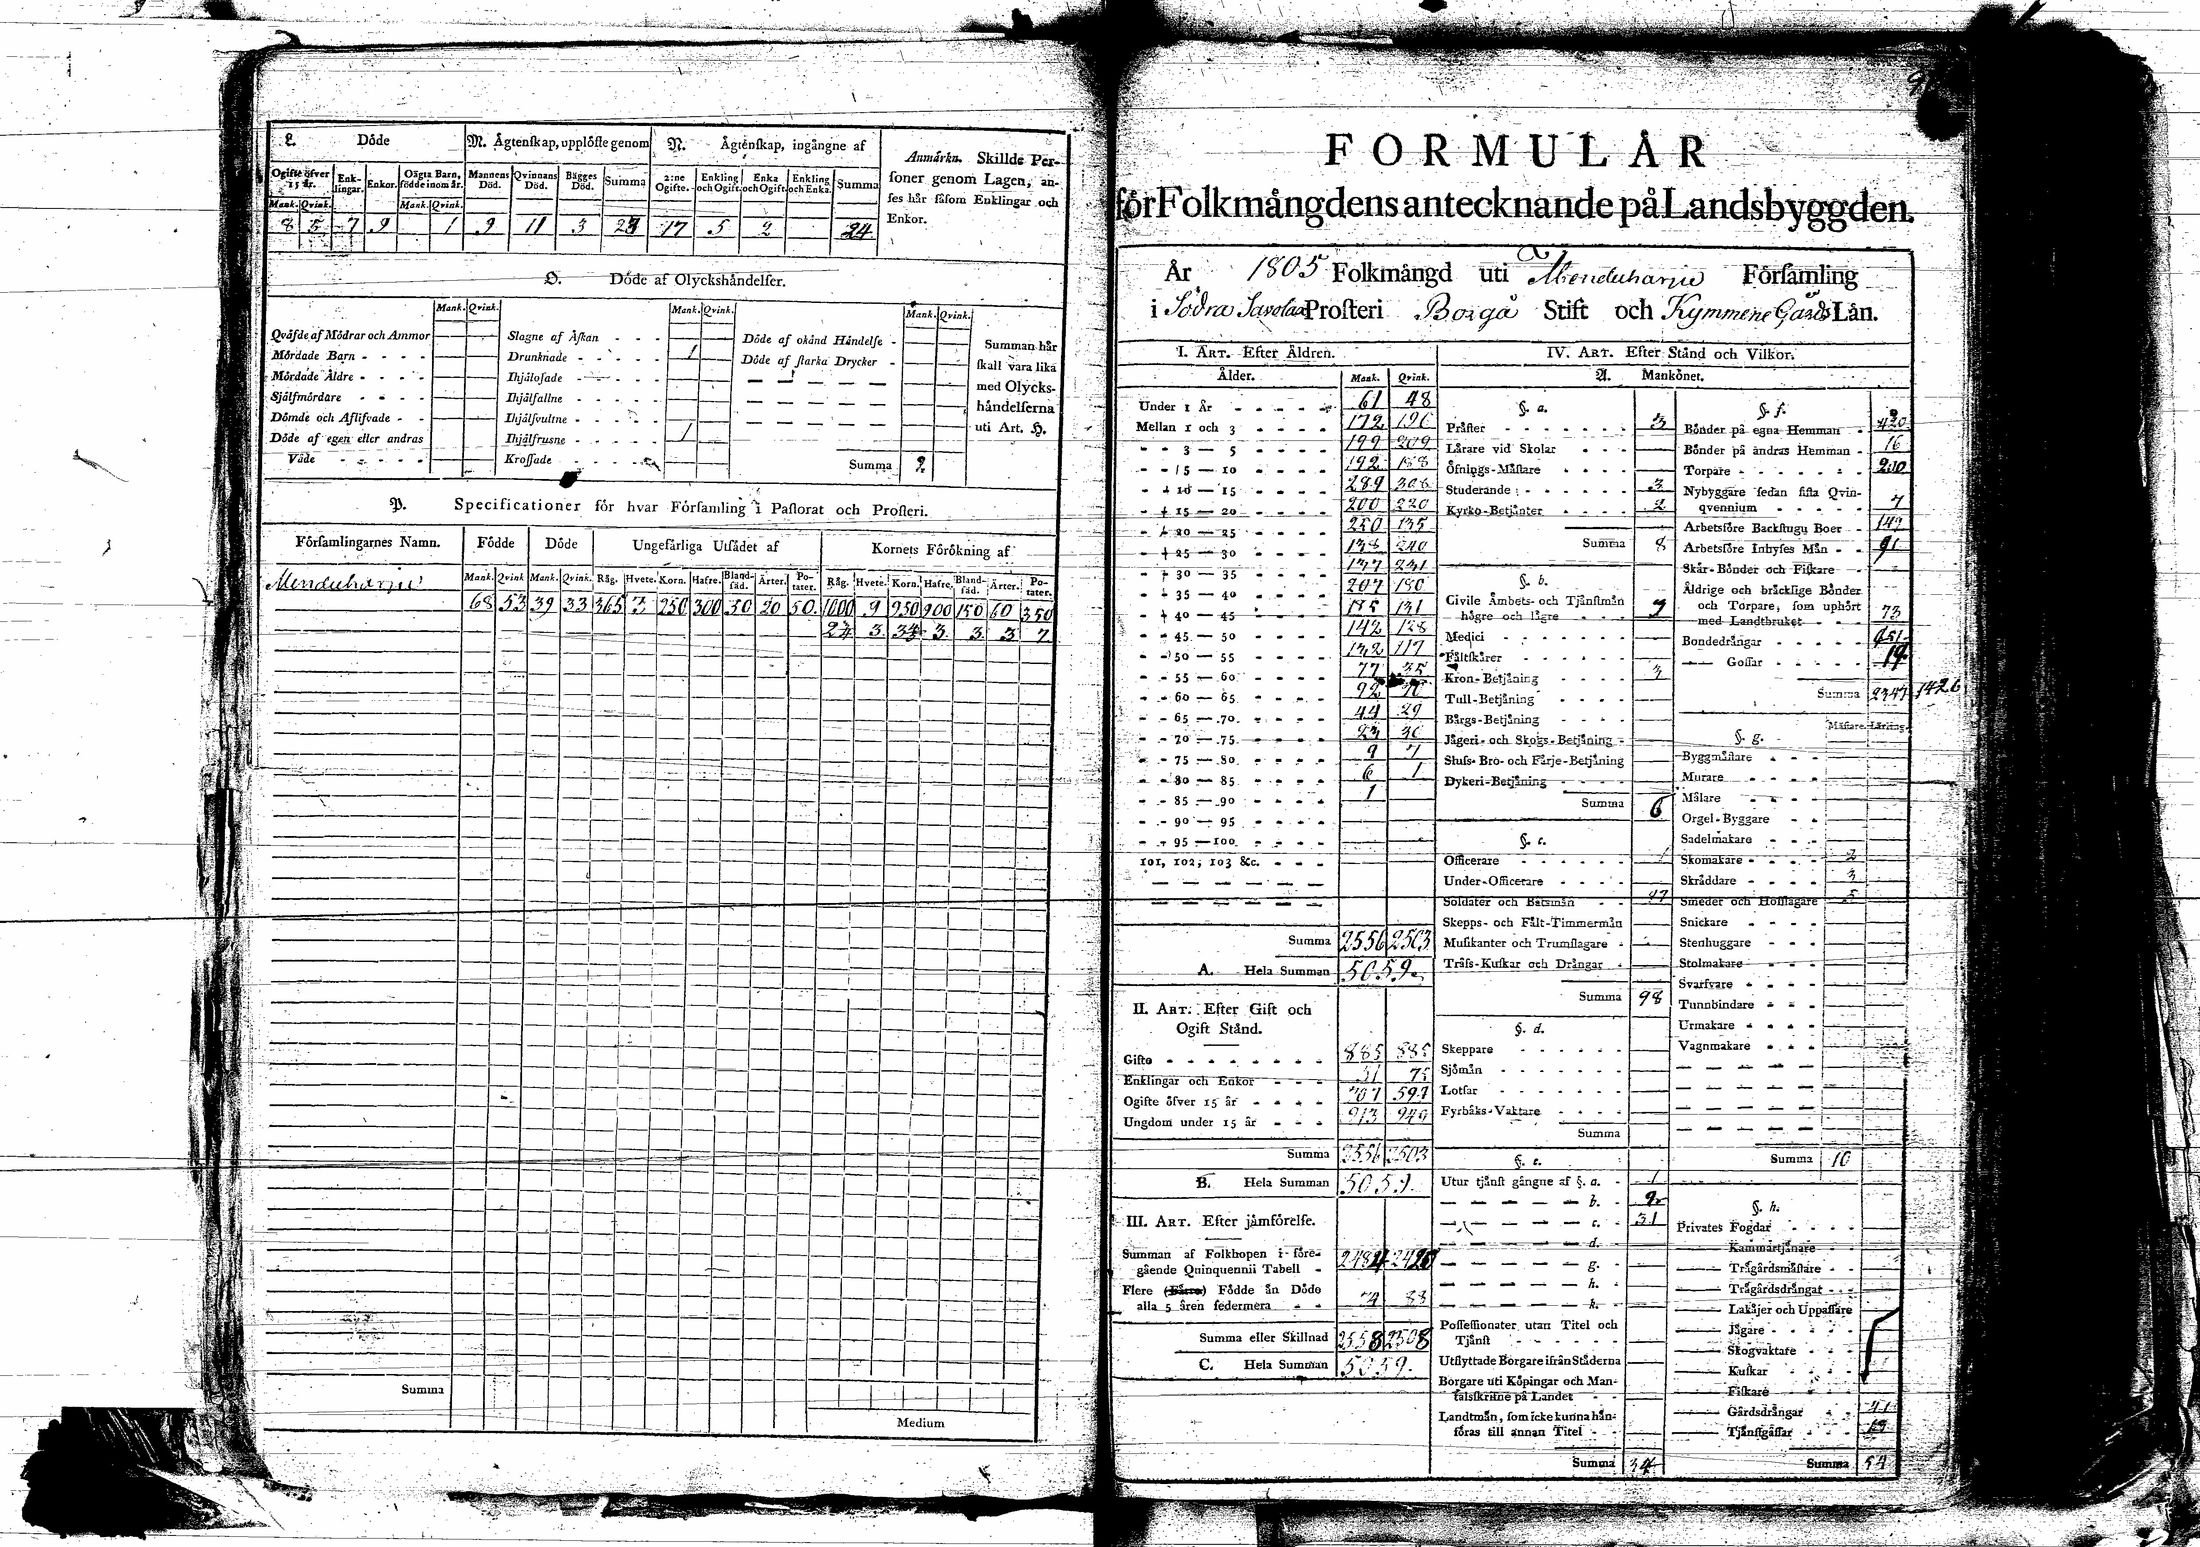 L. Döde
M. Ägtenskap, upplöste genom
N. Ägtenskap, ingångne af
Anmärkn. Skillde Per-
soner genom Lagen, an-
ses här såsom Enklingar och
Enkor.
Ogifte öfver 15 år. Enk-lingar. Enkor. Oägta Barn, födde inom år. Mannens Död. Qvinnans Död. Bägges Död. Summa 2:ne Ogifte. Enkling och Ogift. Enka och Ogift. Enkling och Enka. Summa
Mank. Qvink. Mank. Qvink.
8 5 7 9 1 9 11 3 23 17 5 2 24
O. Döde af Olyckshändelser.
Mank. Qvink. Mank. Qvink. Mank. Qvink.
Qväfde af Mödrar och Ammor
Mördade Barn - - - -
Mördade Äldre - - - -
Sjelfmördare - - - -
Dömde och Aflifvade - -
Döde af egen eller andras
Våde - - - - -
Slagne af Åskan - - -
Drunknade - - - - - 1
Ihjälosade - - - - -
Ihjälfallne - - - -
Ihjälsvultne - - - - -
Ihjälfrusne - - - - - 1
Krossade - - - -
Döde af okänd Händelse -
Döde af starka Drycker -
Summa 2.
Summan här
skall vara lika
med Olycks-
händelserna
uti Art. H.
P. Specificationer för hvar Församling i Pastorat och Prosteri.
Församlingarnes Namn. Födde Döde Ungefärliga Utsädet af Kornets Förökning af
Mank. Qvink Mank. Qvink. Råg. Hvete. Korn. Hafre. Bland-säd. Ärter. Po-tater. Råg. Hvete. Korn. Hafre. Bland-säd. Ärter. Po-tater.
Menduharju
68 53 39 33 365 3 250 300 50 20 50. 1000 9 950 900 150 60 350
3. 3. 3. 3 7
Summa
Medium
FORMULÄR
för Folkmängdens antecknande på Landsbyggden.
År 1805 Folkmängd uti Menduharju Församling
i Södra Savolax Prosteri Borgå Stift och Kymmene Gårds Län.
I. ART. Efter Åldren.
Ålder. Mank. Qvink.
Under 1 År - - - - - 61 48
Mellan 1 och 3 - - - - 172 196
- - 3 — 5 - - - - 199 209
- - 5 — 10 - - - - 192 188
- - 10 — 15 - - - - 289 306
- - 15 — 20 - - - - 200 220
- - 20 — 25 - - - - 250 135
- - 25 — 30 - - - - 138 240
- - 30 — 35 - - - - 231
- - 35 — 40 - - - - 207 180
- - 40 — 45 - - - - 185 131
- - 45 — 50 - - - - 142 128
- - 50 — 55 - - - - 132 117
- - 55 — 60 - - - - 77
- - 60 — 65 - - - - 92
- - 65 — 70 - - - - 44 29
- - 70 — 75 - - - - 23 30
- - 75 — 80 - - - - 9 7
- - 80 — 85 - - - - 6 1
- - 85 — 90 - - - - 1
- - 90 — 95 - - - -
- - 95 — 100 - - - -
101, 102, 103 &c. - - -
Summa 2556 2503
A. Hela Summan 5059.
II. ART. Efter Gift och
Ogift Stånd.
Gifte - - - - - - - - 885 885
Enklingar och Enkor - - - 51 75
Ogifte öfver 15 år - - - - 707 594
Ungdom under 15 år - - - 913 949
Summa 2556 2503
B. Hela Summan 5059.
III. ART. Efter jämförelse.
Summan af Folkhopen i före-
gående Quinquennii Tabell - 2484 2420
Flere (Färre) Födde än Döde
alla 5 åren sedermera - - 74 88
Summa eller Skillnad 2558 2508
C. Hela Summan 5059.
IV. ART. Efter Stånd och Vilkor.
A. Mankönet.
§. a.
Präster - - - - - - - 3
Lärare vid Skolar - - - -
Öfnings-Mästare - - - -
Studerande - - - - - - 3
Kyrko-Betjänter - - - - 2
Summa 8
§. b.
Civile Ämbets- och Tjänstmän
högre och lägre - - -
Medici - - - - - -
Fältskärer - - - - -
Kron-Betjäning - - - - 3
Tull-Betjäning - - - -
Bärgs-Betjäning - - - -
Jägeri- och Skogs-Betjäning -
Sluss- Bro- och Färje-Betjäning
Dykeri-Betjäning - - - -
Summa 6
§. c.
Officerare - - - - - 1
Under-Officerare - - - -
Soldater och Båtsmän - - 97
Skepps- och Fält-Timmermän
Musikanter och Trumslagare -
Träss-Kuskar och Drängar -
Summa 98
§. d.
Skeppare - - - - - -
Sjömän - - - - - - -
Lotsar - - - - - - -
Fyrbåks-Vaktare - - - -
Summa
§. e.
Utur tjänst gångne af §. a. - 1
— — — — — b. - 2
— — — — — c. - 31
— — — — — d. -
— — — — — g. -
— — — — — h. -
— — — — — k. -
Possessionater utan Titel och
Tjänst - - - - - -
Utflyttade Borgare ifrån Städerna
Borgare uti Köpingar och Man-
talsskrifne på Landet - -
Landtmän, som icke kunna hän-
föras till annan Titel - -
Summa 34
§. f.
Bönder på egna Hemman -
Bönder på andras Hemman - 16
Torpare - - - - - - 200
Nybyggare sedan sista Qvin-
qvennium - - - - - 7
Arbetsföre Backstugu Boer - 142
Arbetsföre Inhyses Män - - 91
Skär-Bönder och Fiskare -
Äldrige och bräcklige Bönder
och Torpare, som uphört
med Landtbruket - - - 73
Bondedrängar - - - - -
—— Gossar - - - - -
Summa 2347 1426
Mästare. Lärling.
§. g.
Byggmästare - - -
Murare - - - -
Målare - - - -
Orgel-Byggare - -
Sadelmakare - - -
Skomakare - - - - 2
Skräddare - - - - 3
Smeder och Hofslagare 5
Snickare - - - -
Stenhuggare - - -
Stolmakare - - -
Svarfvare - - - -
Tunnbindare - - -
Urmakare - - - -
Vagnmakare - - -
Summa 10
§. h.
Privates Fogdar - - - -
—— Kammartjänare - -
—— Trägårdsmästare - -
—— Trägårdsdrängar - -
—— Lakäjer och Uppassare
—— Jägare - - - -
—— Skogvaktare - - -
—— Kuskar - - - -
—— Fiskare - - - -
—— Gårdsdrängar - - 41
—— Tjänstgåssar - - -
Summa 54